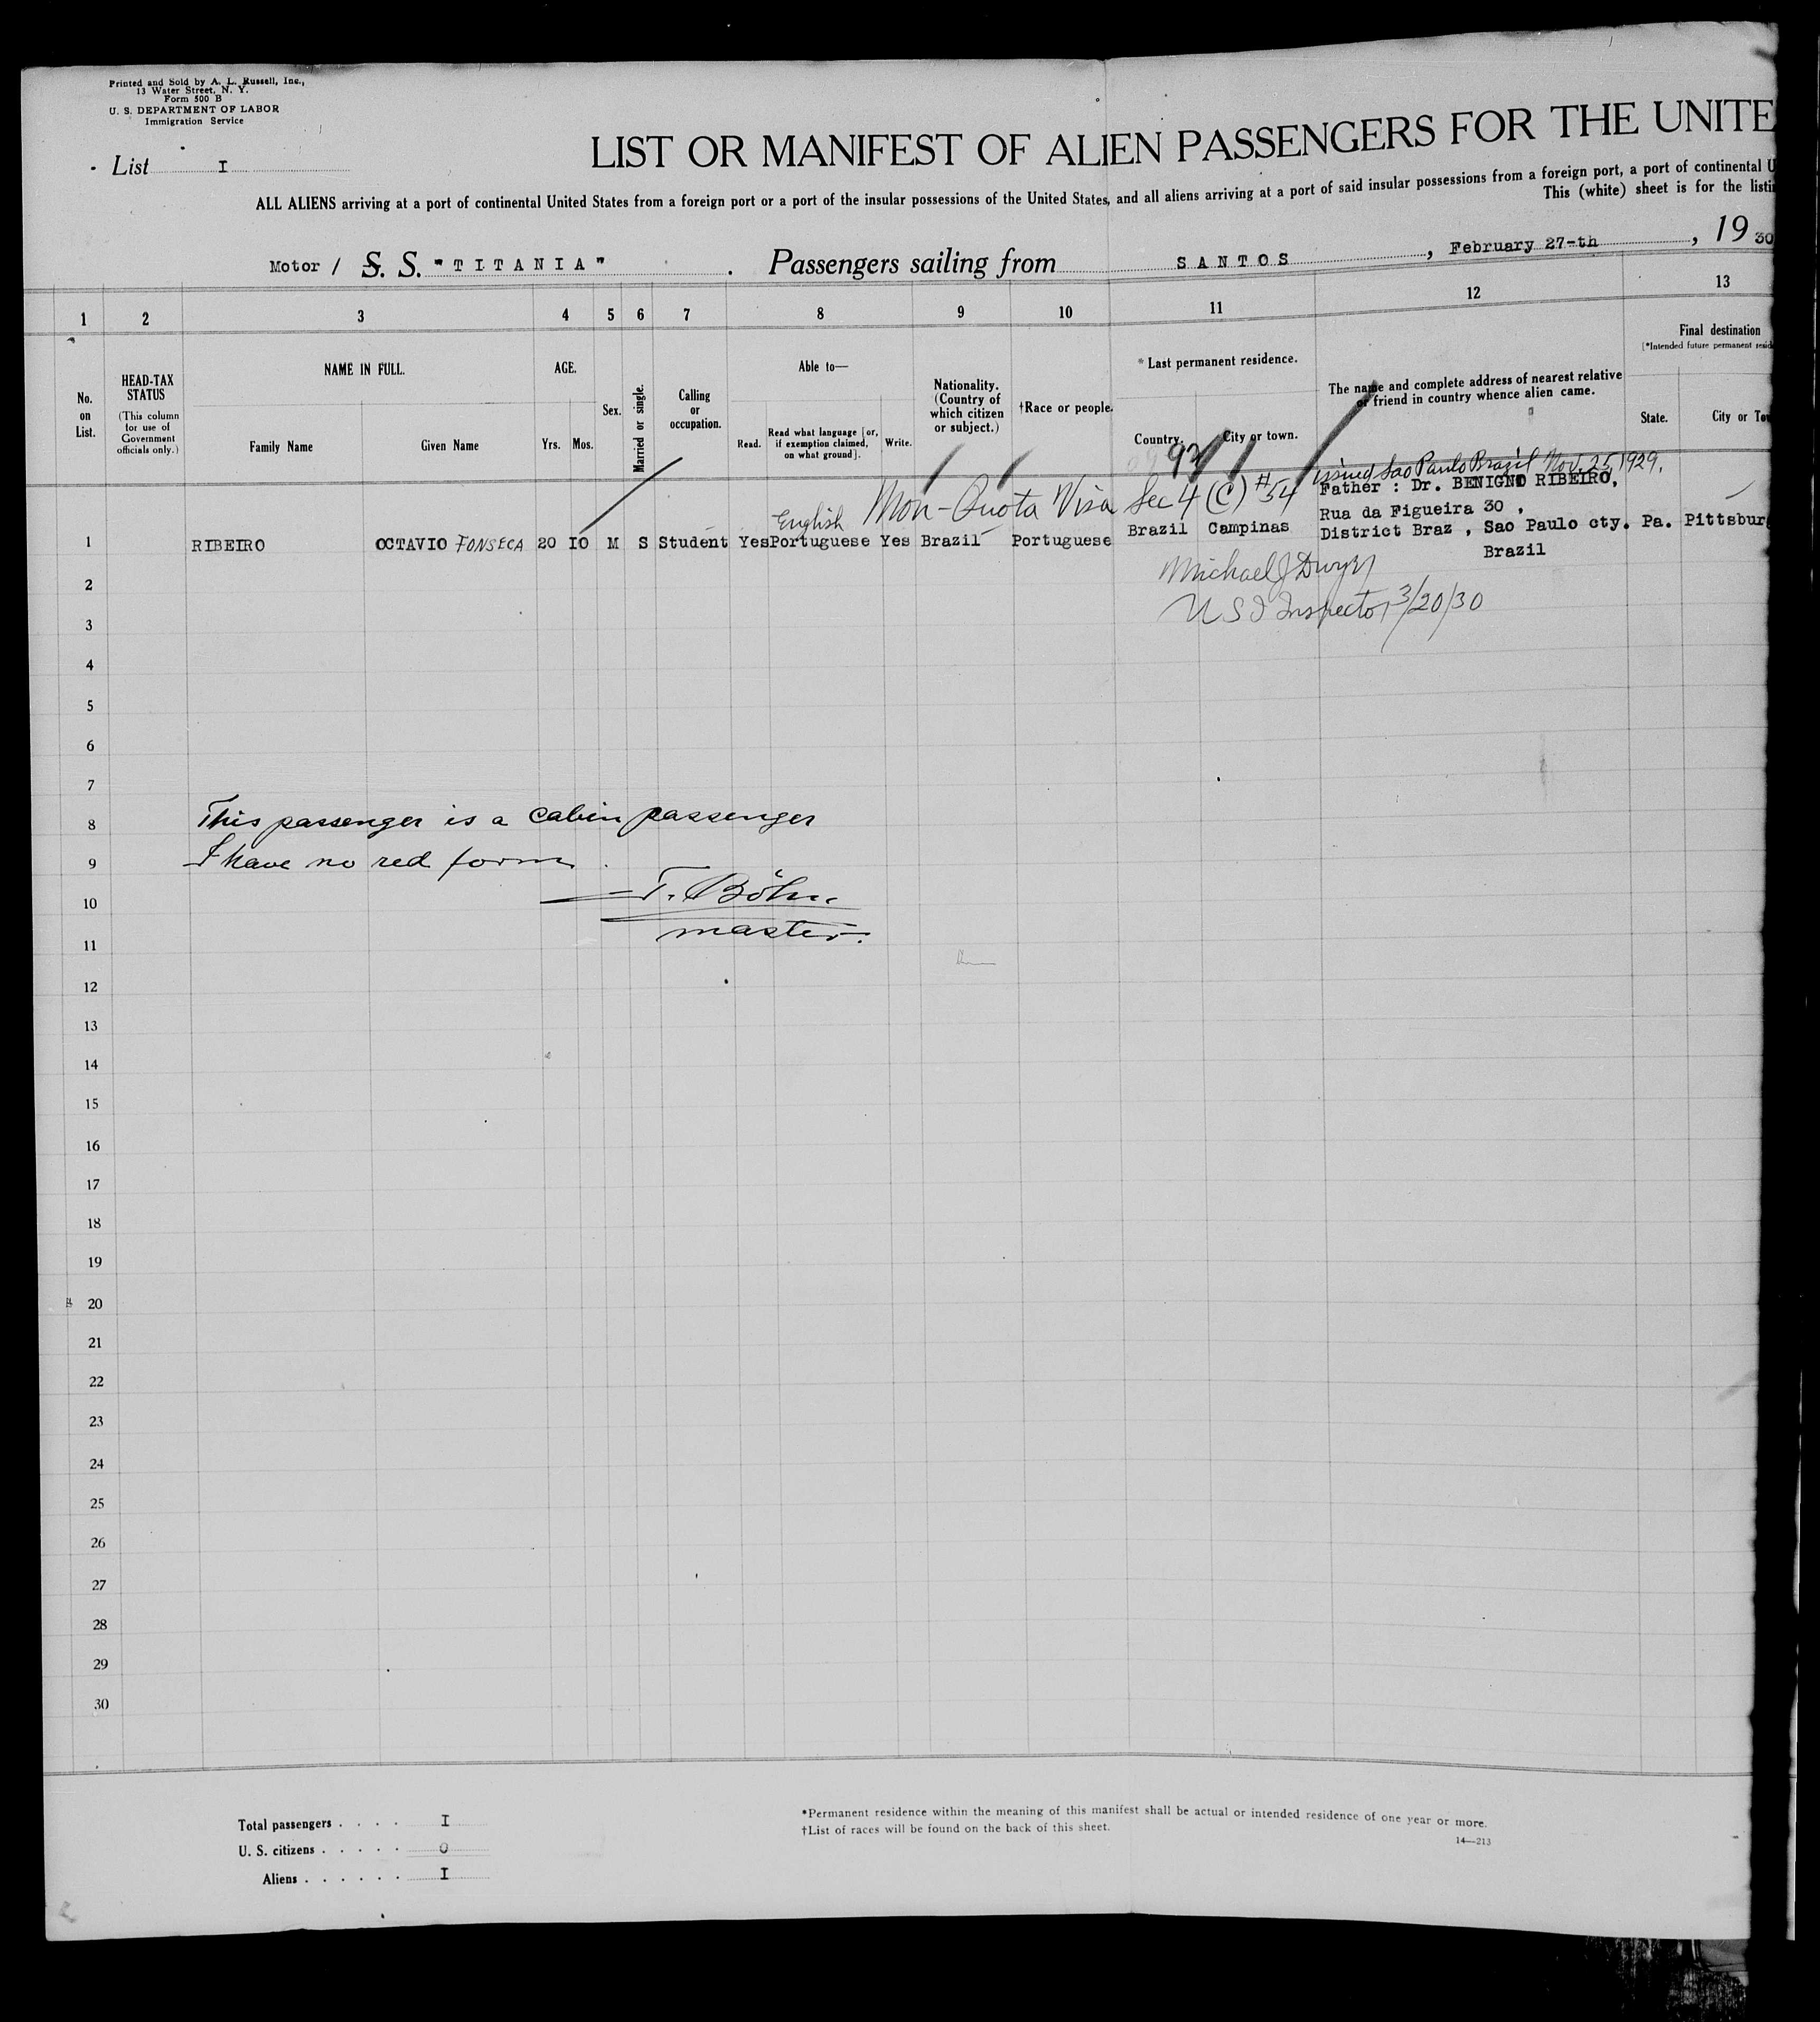 Printed and Sold by A. L. Russell, Inc.,
13 Water Street, N. Y.
Form 500 B
U. S. DEPARTMENT OF LABOR
Immigration Service
List I
LIST OR MANIFEST OF ALIEN PASSENGERS FOR THE UNITE
ALL ALIENS arriving at a port of continental United States from a foreign port or a port of the insular possessions of the United States, and all aliens arriving at a port of said insular possessions from a foreign port, a port of continental U
This (white) sheet is for the listi
Motor / S. S. "TITANIA". Passengers sailing from SANTOS, February 27-th, 19 30
1 2 3 4 5 6 7 8 9 10 11 12 13
No. on List.
HEAD-TAX STATUS
(This column for use of Government officials only.)
NAME IN FULL.
Family Name
Given Name
AGE.
Yrs. Mos.
Sex.
Married or single.
Calling or occupation.
Able to—
Read.
Read what language [or, if exemption claimed, on what ground].
Write.
Nationality. (Country of which citizen or subject.)
†Race or people.
* Last permanent residence.
Country.
City or town.
The name and complete address of nearest relative or friend in country whence alien came.
Final destination
[*Intended future permanent resid
State.
City or Tow
Non-Quota Visa Sec 4 (C) #54 issued Sao Paulo Brazil Nov. 25, 1929.
English
1 RIBEIRO OCTAVIO FONSECA 20 IO M S Student Yes Portuguese Yes Brazil Portuguese Brazil Campinas
Father : Dr. BENIGNO RIBEIRO,
Rua da Figueira 30 ,
District Braz , Sao Paulo cty. Pa. Pittsburg
Brazil
2 Michael J Dwyer
3 U S I Inspector 3/20/30
4
5
6
7
8 This passenger is a cabin passenger
9 I have no red form.
10 T. Böhn
11 master.
12
13
14
15
16
17
18
19
20
21
22
23
24
25
26
27
28
29
30
Total passengers . . . . I
U. S. citizens . . . . . 0
Aliens . . . . . . I
*Permanent residence within the meaning of this manifest shall be actual or intended residence of one year or more.
†List of races will be found on the back of this sheet.
14—213